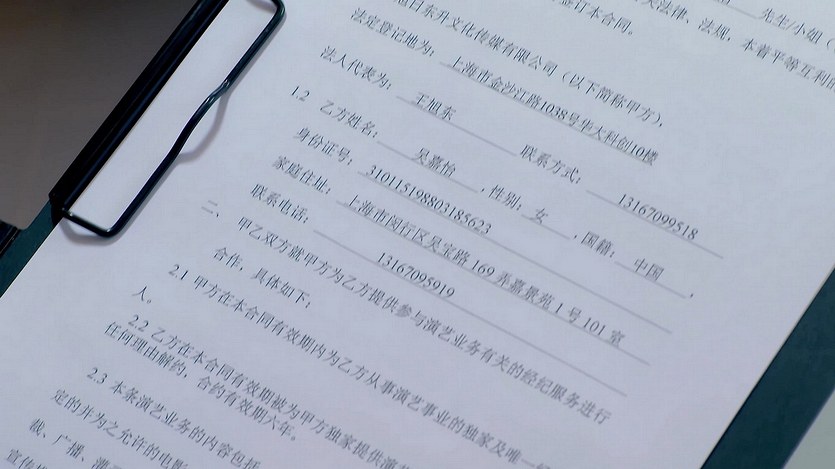 先生/小姐（
法律、法规，本着平等互利的
签订本合同。
旭日东升文化传媒有限公司（以下简称甲方），
法定登记地为：上海市金沙江路1038号华大科创10楼
法人代表为：王旭东 联系方式：13167099518
1.2 乙方姓名：吴嘉怡，性别：女，国籍：中国，
身份证号：310115198803185623
家庭住址：上海市闵行区吴宝路169弄嘉景苑1号101室
联系电话：13167095919
二、甲乙双方就甲方为乙方提供参与演艺业务有关的经纪服务进行
合作，具体如下：
2.1 甲方在本合同有效期内为乙方从事演艺事业的独家及唯一经
人。
2.2 乙方在本合同有效期被为甲方独家提供演
任何理由解约，合约有效期六年。
2.3 本条演艺业务的内容包括
定的并为之允许的电影
裁、广播、灌
宣传